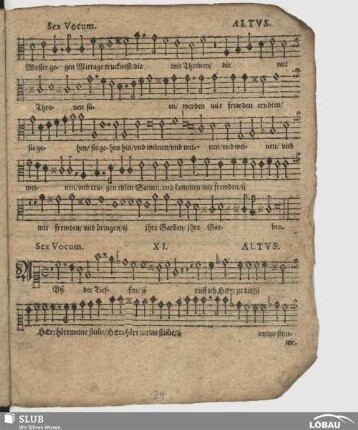 Sex Vocum. ALTVS.
Wasser gegen Mittage trucknest/die mit Threnen/ die mit
Threnen säen/ werden mit frewden erndten/
sie gehen/ sie gehen hin/ vnd weinen/vnd weinen/vnd weinen/ vnd
weinen/vnd tragen edlen Samen/vnd kommen mit frewden/ij
mit frewden/ vnd bringen/ij ihre Garben/ ihre Garben.
Sex Vocum. XI. ALTVS.
Auß der Tieffen/ ij ruff ich HErr zu dir/ij
HErr höre meine stim/HErr höre meine stim/ij meine stimme,
24
SLUB
Wir führen Wissen.
LÖBAU